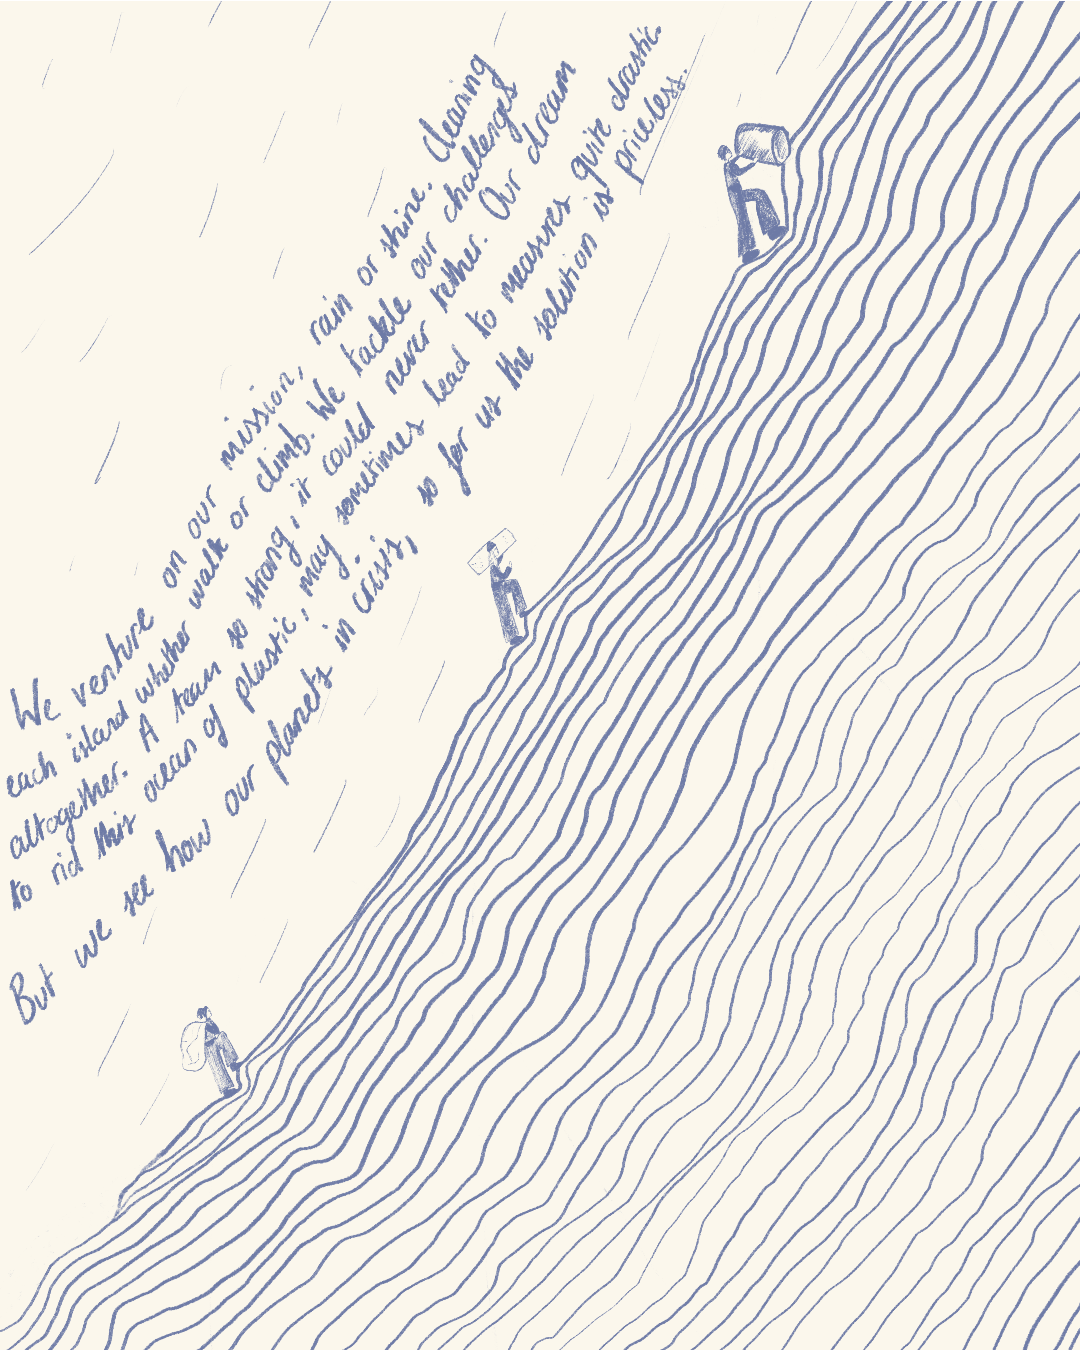 We venture on our mission, rain or shine. Cleaning
each island whether walk or climb. We tackle our challenges
altogether. A team so strong, it could never tether. Our dream
to rid this ocean of plastic, may sometimes lead to measures quite drastic.
But we see how our planets in crisis, so for us the solution is priceless.